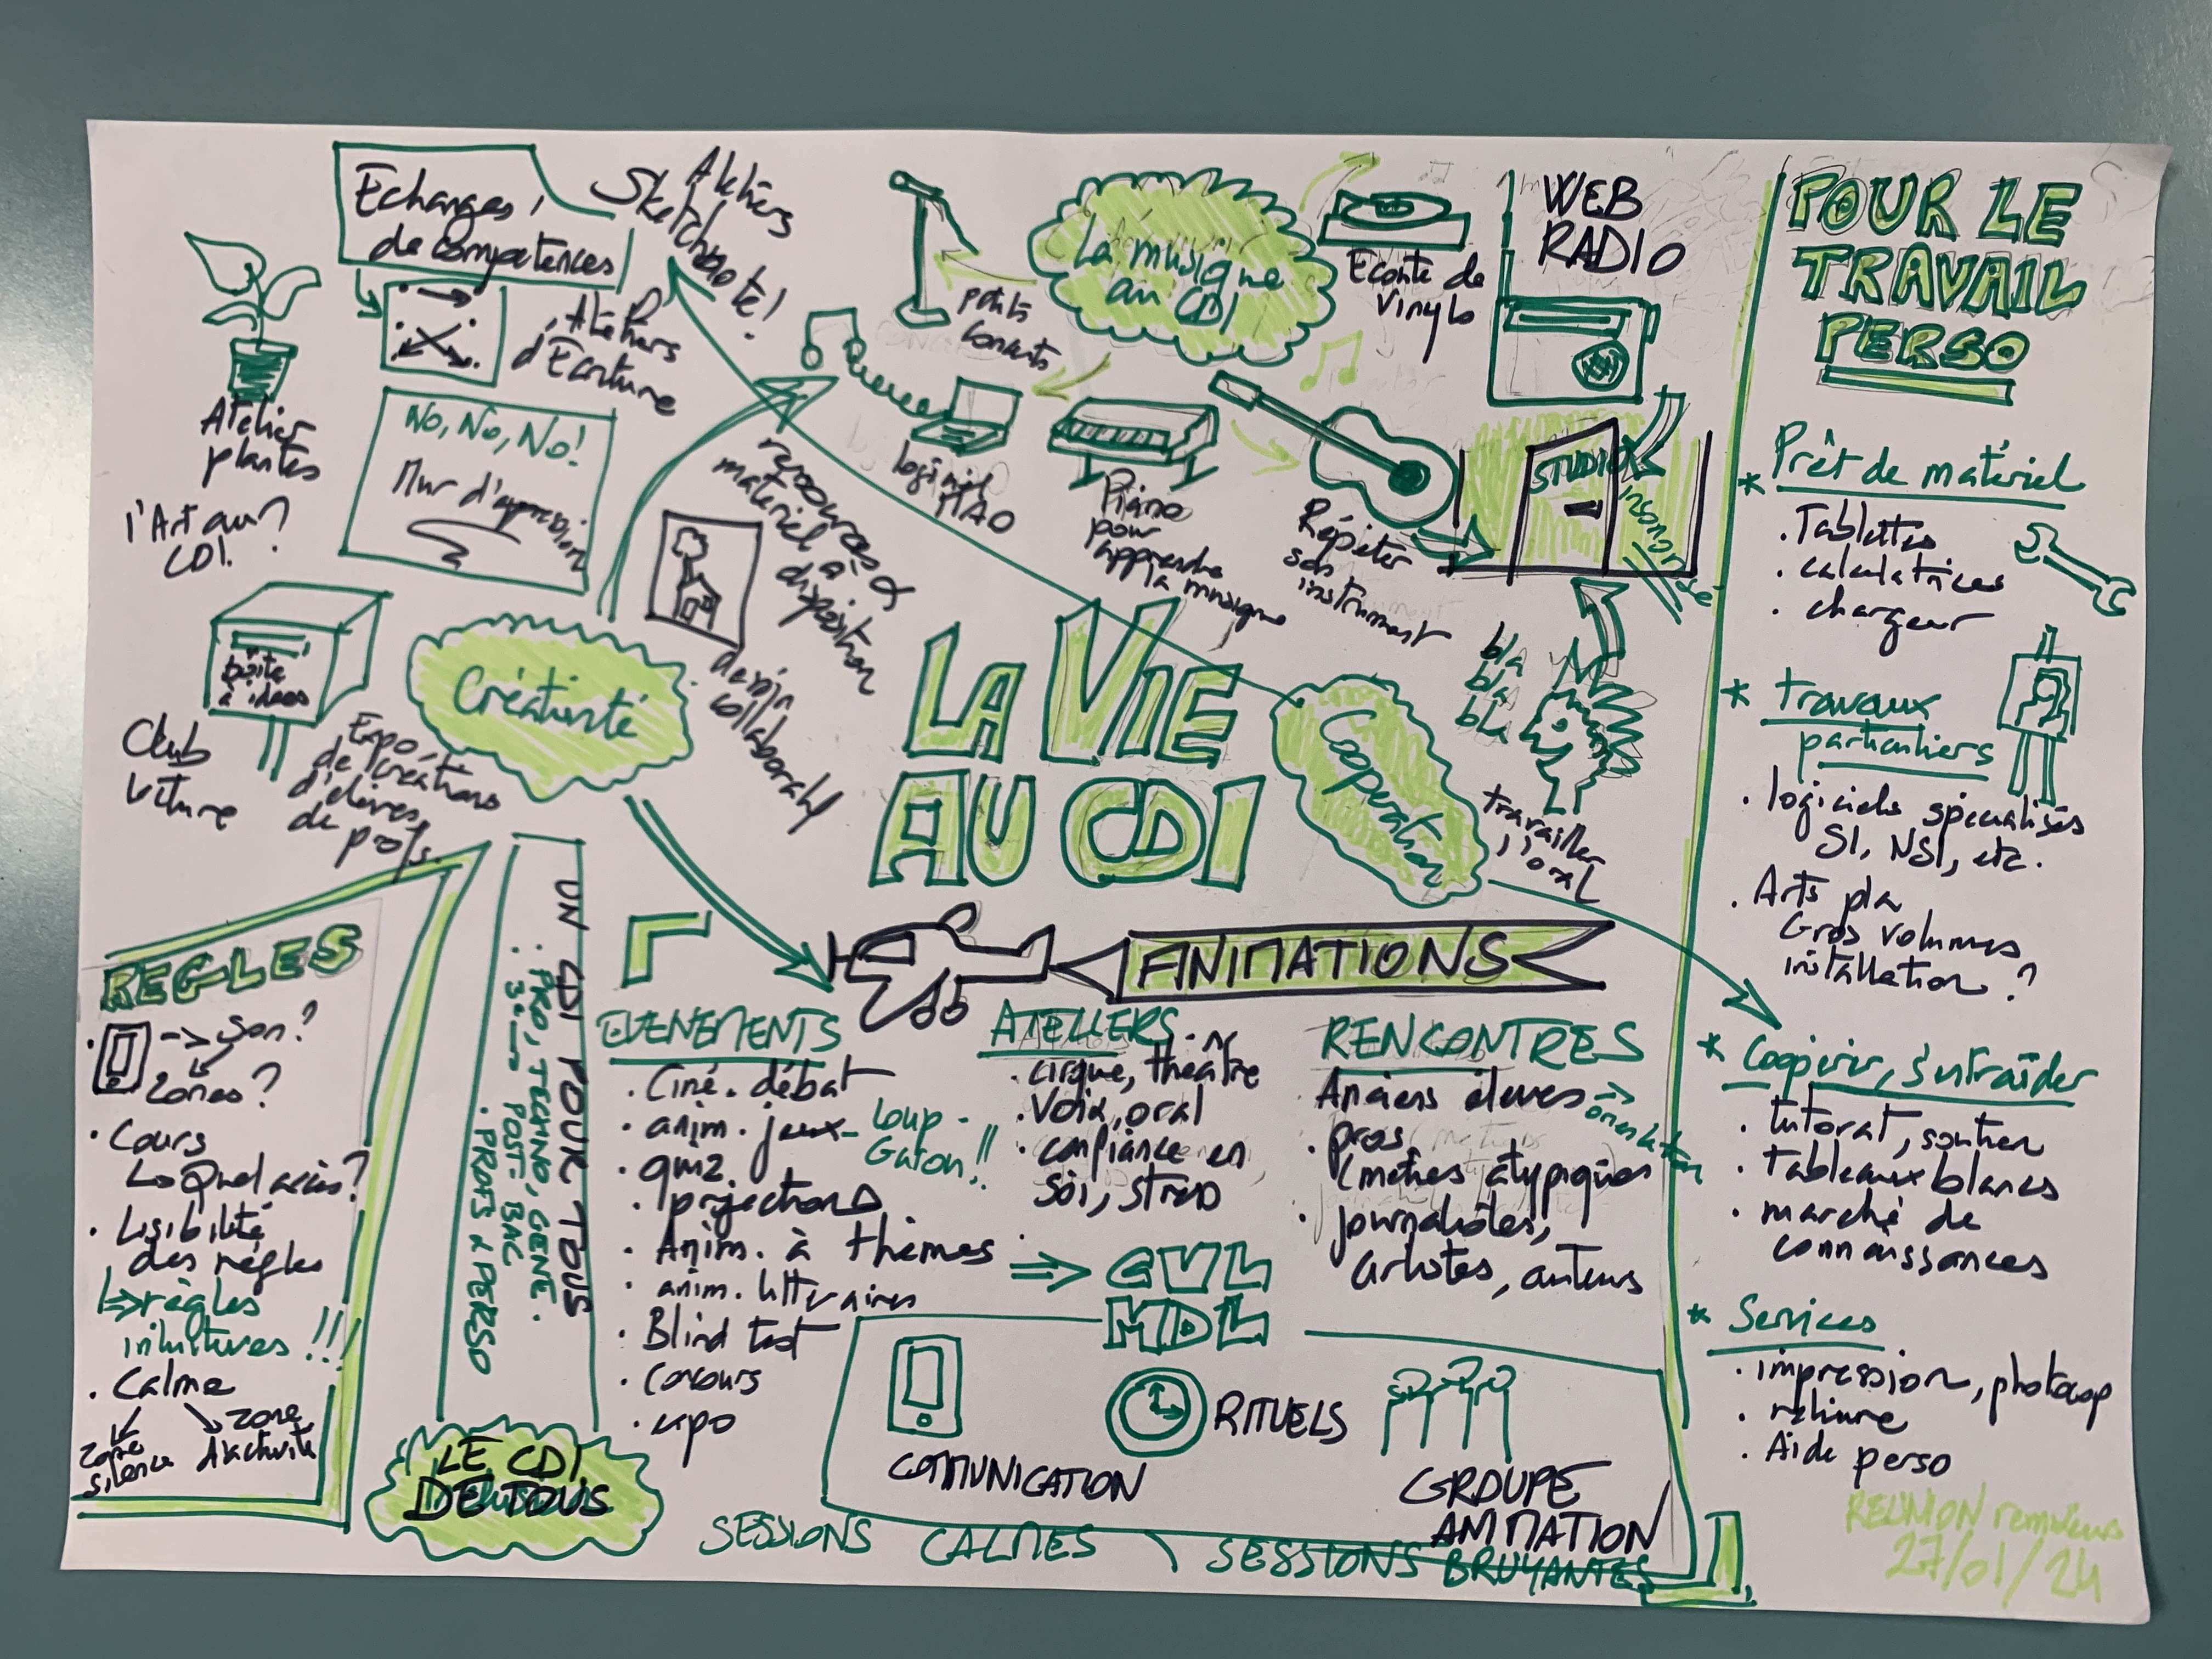 Echanges
de compétences
Ateliers
Sketchnote!
Ateliers
d'Ecriture
Atelier
plantes
No, No, No!
Mur d'expression
l'Art au ?
CDI.
boîte
à idées
Club
Expo.
de créations
d'élèves,
de profs.
Créativité
ressources &
matériel à
disposition
dessin
collaboratif
petits
concerts
La musique
au CDI
Ecoute de
vinyls
WEB
RADIO
logiciel
MAO
Piano
pour
apprendre
la musique
Répéter
son
instrument
STUDIO
insonorisé
bla
bla
bla
travailler
l'oral
LA VIE
AU CDI
Coopération
ANIMATIONS
REGLES
. -> Son?
Zones?
. Cours
↳ Quel accès?
. Lisibilité
des règles
↳ règles
intuitives !!!
. Calme
zone
silence
zone
d'activité
UN CDI POUR TOUS
. PRO, TECHNO, GENE.
. 3e → POST-BAC
. PROFS & PERSO
LE CDI
DE TOUS
EVENEMENTS
. Ciné. débat
. anim. jeux - Loup-
Garou!!
. quiz.
. projections
. Anim. à thèmes
. anim. littéraires
. Blind test
. Concours
. expo
ATELIERS
. cirque, théâtre
. Voix, oral
. confiance en
soi, stress
⇒ CVL
MDL
RENCONTRES
Anciens élèves →
orientation
. pros,
(métiers atypiques
. journalistes,
artistes, auteurs
COMMUNICATION
RITUELS
GROUPE
ANIMATION
SESSIONS CALMES \ SESSIONS BRUYANTES
POUR LE
TRAVAIL
PERSO
* Prêt de matériel
. Tablettes
. calculatrices
. chargeur
* travaux
particuliers
. logiciels spécialisés
SI, NSI, etc.
. Arts pla
Gros volumes
installation ?
* Coopérer, s'entraider
. tutorat, soutien
. tableaux blancs
. marché de
connaissances
* Services
. impression, photocop
. reliure
. Aide perso
REUNION
27/01/24